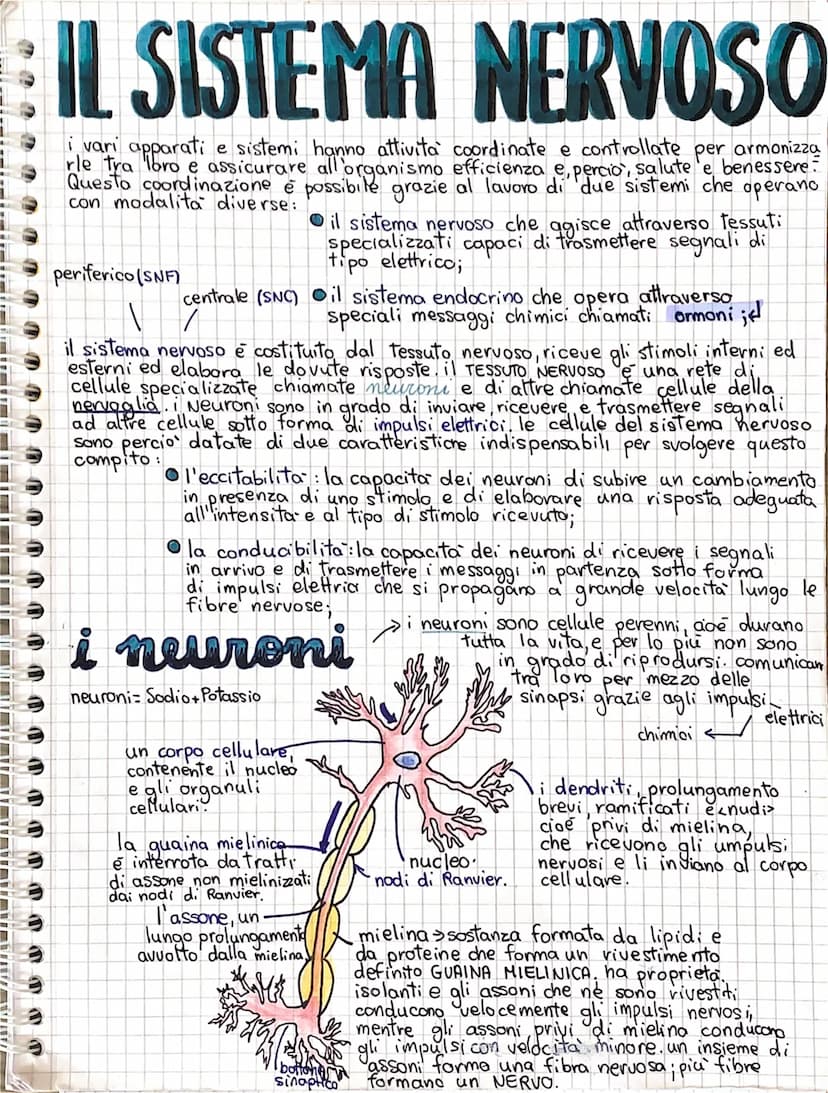 IL SISTEMA NERVOSO
i vari apparati e sistemi hanno attività coordinate e controllate per armonizza
rle tra loro e assicurare all'organismo efficienza e, perciò, salute e benessere.
Questa coordinazione è possibile grazie al lavoro di due sistemi che operano
con modalità diverse:
il sistema nervoso che agisce attraverso tessuti
specializzati capaci di trasmettere segnali di
tipo elettrico;
periferico (SNP)
centrale (SNC)
il sistema endocrino che opera attraverso
speciali messaggi chimici chiamati ormoni;
il sistema nervoso è costituito dal tessuto nervoso, riceve gli stimoli interni ed
esterni ed elabora le dovute risposte. il TESSUTO NERVOSO è una rete di
cellule specializzate chiamate neuroni e di altre chiamate cellule della
nervoglia. i neuroni sono in grado di inviare, ricevere e trasmettere segnali
ad altre cellule sotto forma di impulsi elettrici. le cellule del sistema nervoso
sono perciò datate di due caratteristiche indispensabili per svolgere questo
compito:
l'eccitabilità: la capacità dei neuroni di subire un cambiamento
in presenza di uno stimolo e di elaborare una risposta adeguata
all'intensità e al tipo di stimolo ricevuto;
la conducibilità: la capacità dei neuroni di ricevere i segnali
in arrivo e di trasmettere i messaggi in partenza sotto forma
di impulsi elettrici che si propagano a grande velocità lungo le
fibre nervose;
i neuroni
→ i neuroni sono cellule perenni, cioè durano
tutta la vita, e per lo più non sono
in grado di riprodursi. comunican
tra loro per mezzo delle
sinapsi grazie agli impulsi
elettrici
chimici
neuroni= Sodio+Potassio
un corpo cellulare,
contenente il nucleo
e gli organuli
cellulari.
i dendriti, prolungamento
brevi, ramificati e <nudi>
cioè privi di mielina,
che ricevono gli umpulsi
nervosi e li inviano al corpo
cellulare.
la guaina mielinica
è interrota da tratti
di assone non mielinizzati
dai nodi di Ranvier.
nucleo.
nodi di Ranvier.
l'assone, un
lungo prolungament
avvolto dalla mielina
mielina → sostanza formata da lipidi e
da proteine che forma un rivestimento
definito GUAINA MIELINICA. ha proprietà
isolanti e gli assoni che ne sono rivestiti
conducono velocemente gli impulsi nervosi,
mentre gli assoni privi di mielina conducono
gli impulsi con velocità minore. un insieme di
assoni forma una fibra nervosa; più fibre
formano un NERVO.
bottone
sinaptico